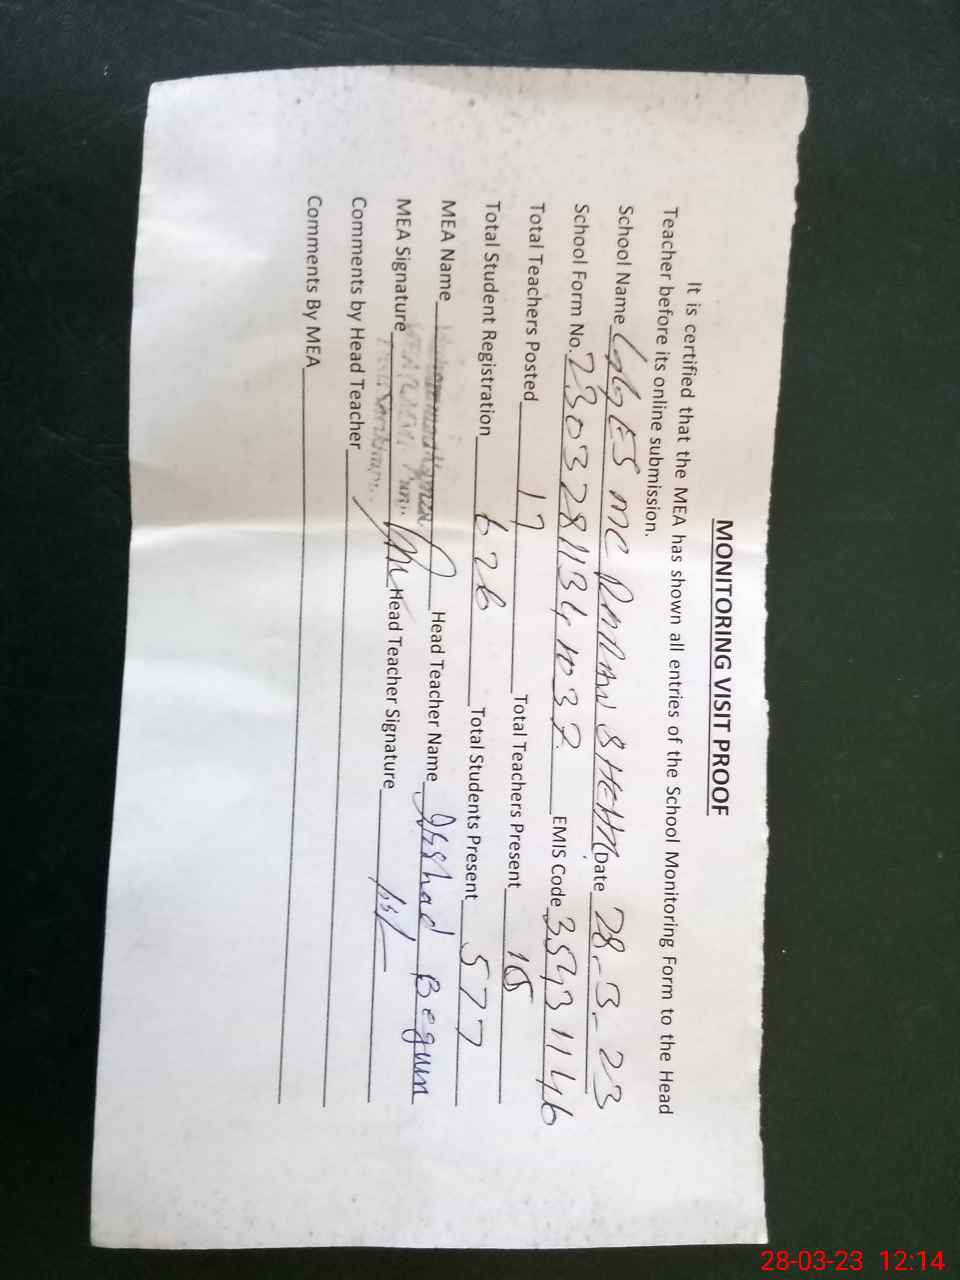 MONITORING VISIT PROOF
It is certified that the MEA has shown all entries of the School Monitoring Form to the Head
Teacher before its online submission.
School Name GGES MC Date 28-3-23
School Form No. 23032811341037 EMIS Code 35431146
Total Teachers Posted 17 Total Teachers Present 16
Total Student Registration 626 Total Students Present 577
MEA Name Head Teacher Name Irshad Begum
MEA Signature Head Teacher Signature
Comments by Head Teacher
Comments By MEA
28-03-23 12:14